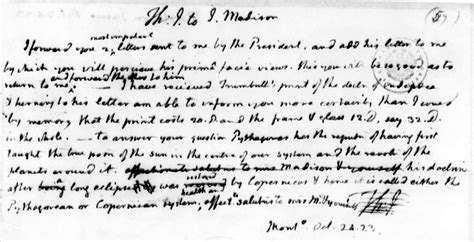 Th: J. to J. Madison
most important
I forward you 2. letters sent to me by the President, and add his letter to me
by which you will percieve his primâ facie views. this you will be so good as to
return to me, and forward the other to him — I have recieved Trumbull's print of the declñ of indepdce
& turning to his letter am able to inform you more certainly than I could
by memory that the print costs 20. D. and the frame & glass 12. D. say 32. D.
in the whole. — to answer your question Pythagoras has the reputñ of having first
taught the true posn of the sun in the centre of our system and the revolñ of the
planets around it. affectionate salutns to mrs Madison & yourself his doctrine
after being long eclipsed was restored by Copernicus & hence it is called either the
Pythagorean or Copernican system, affect. salutns to mrs M. & yourself Th J
Monto. Oct. 24. 23.